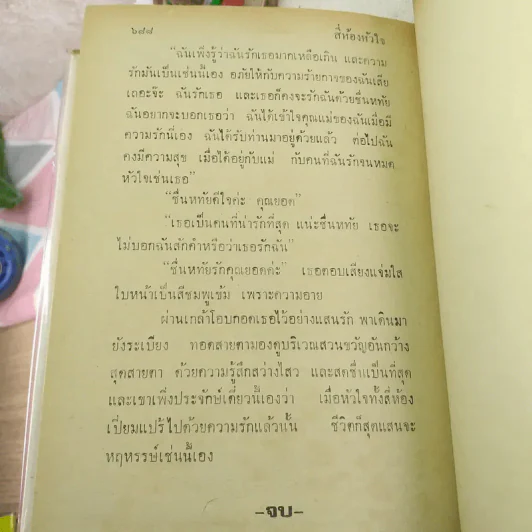 ๖๘๘ สี่ห้องหัวใจ
“ฉันเพิ่งรู้ว่าฉันรักเธอมากเหลือเกิน และความ
รักมันเป็นเช่นนี้เอง อภัยให้กับความร้ายกาจของฉันเสีย
เถอะจ๊ะ ฉันรักเธอ และเธอก็คงจะรักฉันด้วยชื่นหทัย
ฉันอยากจะบอกเธอว่า ฉันได้เข้าใจคุณแม่ของฉันเมื่อมี
ความรักนี่เอง ฉันได้รับท่านมาอยู่ด้วยแล้ว ต่อไปฉัน
คงมีความสุข เมื่อได้อยู่กับแม่ กับคนที่ฉันรักจนหมด
หัวใจเช่นเธอ”
“ชื่นหทัยดีใจค่ะ คุณยอด”
“เธอเป็นคนที่น่ารักที่สุด แน่ะชื่นหทัย เธอจะ
ไม่บอกฉันสักคำหรือว่าเธอรักฉัน”
“ชื่นหทัยรักคุณยอดค่ะ” เธอตอบเสียงแจ่มใส
ใบหน้าเป็นสีชมพูเข้ม เพราะความอาย
ผ่านเกล้าโอบกอดเธอไว้อย่างแสนรัก พาเดินมา
ยังระเบียง ทอดสายตามองดูบริเวณสวนขวัญอันกว้าง
สุดสายตา ด้วยความรู้สึกสว่างไสว และสดชื่นเป็นที่สุด
และเขาเพิ่งประจักษ์เดี๋ยวนี้เองว่า เมื่อหัวใจทั้งสี่ห้อง
เปี่ยมแปร้ไปด้วยความรักแล้วนั้น ชีวิตก็สุดแสนจะ
หฤหรรษ์เช่นนี้เอง
-จบ-